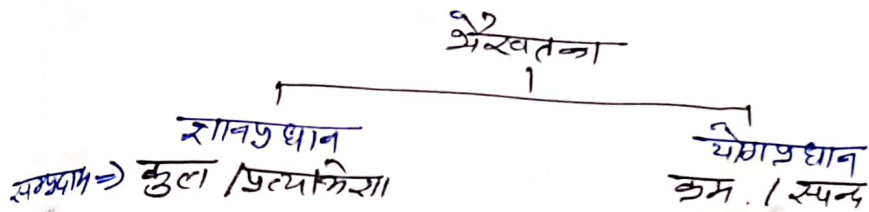 भैरवतन्त्र
ज्ञानप्रधान योगप्रधान
सम्प्रदाय ⇒ कुल / प्रत्यभिज्ञा क्रम. / स्पन्द